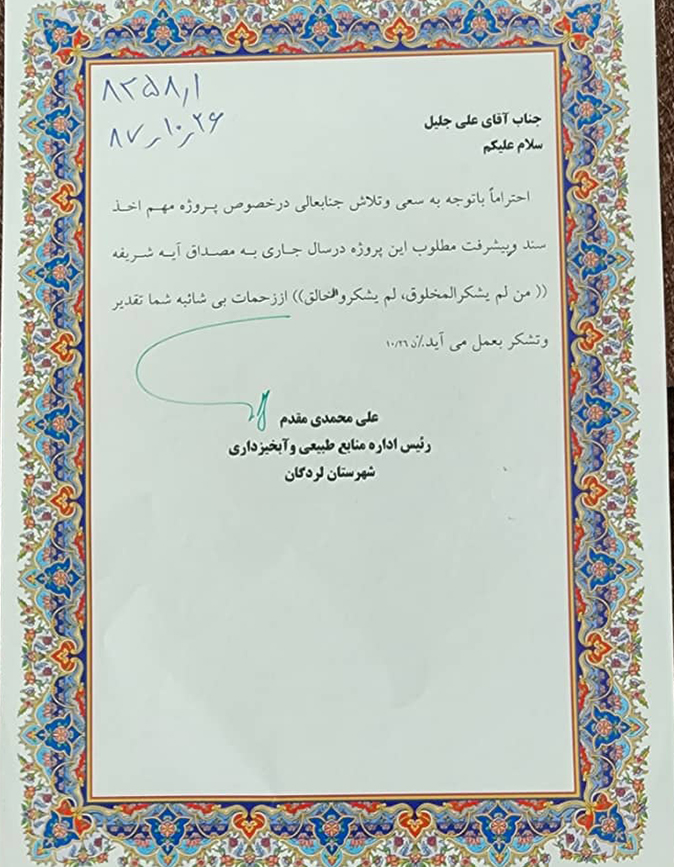 ۸۳۵۸٫۱
۸۷٫۱۰٫۲۶
جناب آقای علی جلیل
سلام علیکم
احتراماً باتوجه به سعی وتلاش جنابعالی درخصوص پروژه مهم اخذ
سند وپیشرفت مطلوب این پروژه درسال جاری به مصداق آیه شریفه
(( من لم یشکرالمخلوق، لم یشکروالخالق)) اززحمات بی شائبه شما تقدیر
وتشکر بعمل می آید./ن ۱۰/۲٦
علی محمدی مقدم
رئیس اداره منابع طبیعی وآبخیزداری
شهرستان لردگان